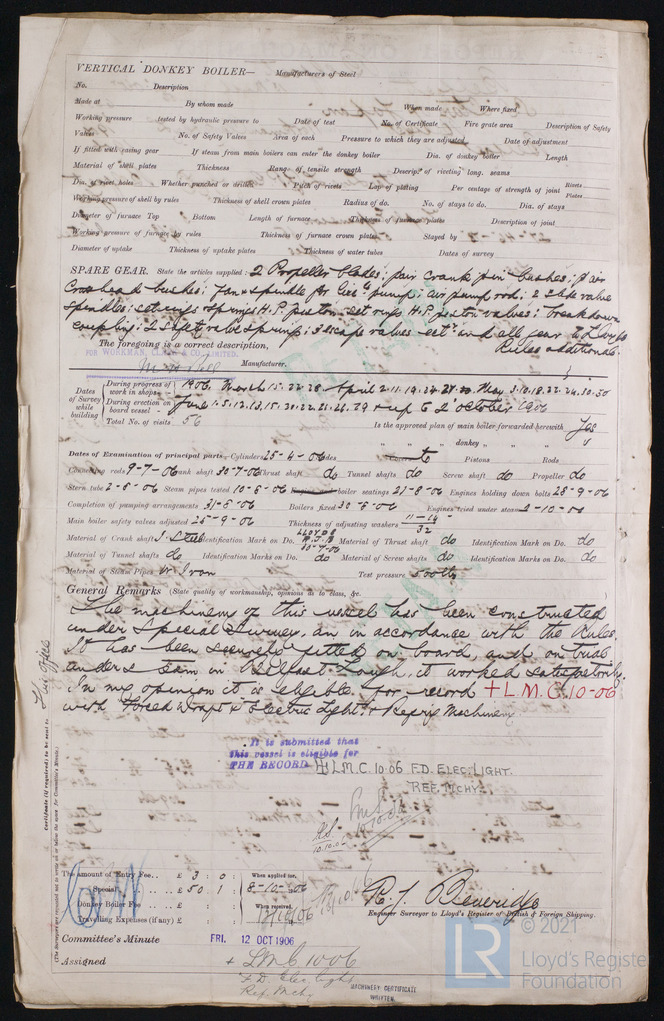 VERTICAL DONKEY BOILER— Manufacturers of Steel
No. Description
Made at By whom made When made Where fixed
Working pressure tested by hydraulic pressure to Date of test No. of Certificate Fire grate area Description of Safety
Valves No. of Safety Valves Area of each Pressure to which they are adjusted Date of adjustment
If fitted with easing gear If steam from main boilers can enter the donkey boiler Dia. of donkey boiler Length
Material of shell plates Thickness Range of tensile strength Descrip. of riveting long. seams
Dia. of rivet holes Whether punched or drilled Pitch of rivets Lap of plating Per centage of strength of joint Rivets Plates
Working pressure of shell by rules Thickness of shell crown plates Radius of do. No. of stays to do. Dia. of stays
Diameter of furnace Top Bottom Length of furnace Thickness of furnace plates Description of joint
Working pressure of furnace by rules Thickness of furnace crown plates Stayed by
Diameter of uptake Thickness of uptake plates Thickness of water tubes Dates of survey
SPARE GEAR. State the articles supplied:— 2 Propeller blades; pair crank pin bushes; pair
Crosshead bushes; fan & spindle for pump; air pump rod; 2 slide valve
spindles; set rings & springs H.P. piston; set rings H.P. piston valves; breakdown
coupling; 2 safety valve springs; 3 escape valves and all gear to Lloyds
Rules additional.
The foregoing is a correct description,
FOR WORKMAN, CLARK & CO. LIMITED.
Manufacturer.
Dates of Survey while building
During progress of work in shops 1906. March 15.22.28. April 2.11.19.24.27.30. May 3.10.18.22.24.30.50
During erection on board vessel June 1.5.12.13.15.20.22.25.26.29 & up to 2 October 1906
Total No. of visits 56 Is the approved plan of main boiler forwarded herewith Yes
" " " donkey " " "
Dates of Examination of principal parts—Cylinders 25-4-06 Slides Covers do Pistons Rods
Connecting rods 9-7-06 Crank shaft 30-7-06 Thrust shaft do Tunnel shafts do Screw shaft do Propeller do
Stern tube 2-8-06 Steam pipes tested 10-8-06 boiler seatings 21-8-06 Engines holding down bolts 25-9-06
Completion of pumping arrangements 31-8-06 Boilers fixed 30-8-06 Engines tried under steam 2-10-06
Main boiler safety valves adjusted 25-9-06 Thickness of adjusting washers 11-14/32
Material of Crank shaft I. Steel Identification Mark on Do. LLOYDS 30-7-06 Material of Thrust shaft do Identification Mark on Do. do
Material of Tunnel shafts do Identification Marks on Do. do Material of Screw shaft do Identification Marks on Do. do
Material of Steam Pipes W. Iron Test pressure 500 lbs
General Remarks (State quality of workmanship, opinions as to class, &c.
The machinery of this vessel has been constructed
under Special Survey, an in accordance with the Rules.
It has been securely fitted on board, and on trial
under steam in Belfast Lough, it worked satisfactorily.
In my opinion it is eligible for record + L.M.C. 10-06
with Forced Draft & Electric Light & Refrig Machinery
It is submitted that
this vessel is eligible for
THE RECORD + L.M.C. 10.06 F.D. ELEC. LIGHT.
REF. MCHY.
10.10.06
Certificate (if required) to be sent to
(The Surveyors are requested not to write on or below the space for Committee's Minute.)
The amount of Entry Fee .. £ 3 : 0 : When applied for,
Special .. £ 50 : 1 : 8-10-06
Donkey Boiler Fee .. £ : : When received,
Travelling Expenses (if any) £ : :
R. J. Beveridge
Engineer Surveyor to Lloyd's Register of British & Foreign Shipping.
Committee's Minute FRI. 12 OCT 1906
Assigned + LMC 10 06
F.D. Elec light
Ref. Mch.
MACHINERY CERTIFICATE WRITTEN
© 2021
LR
Lloyd's Register
Foundation